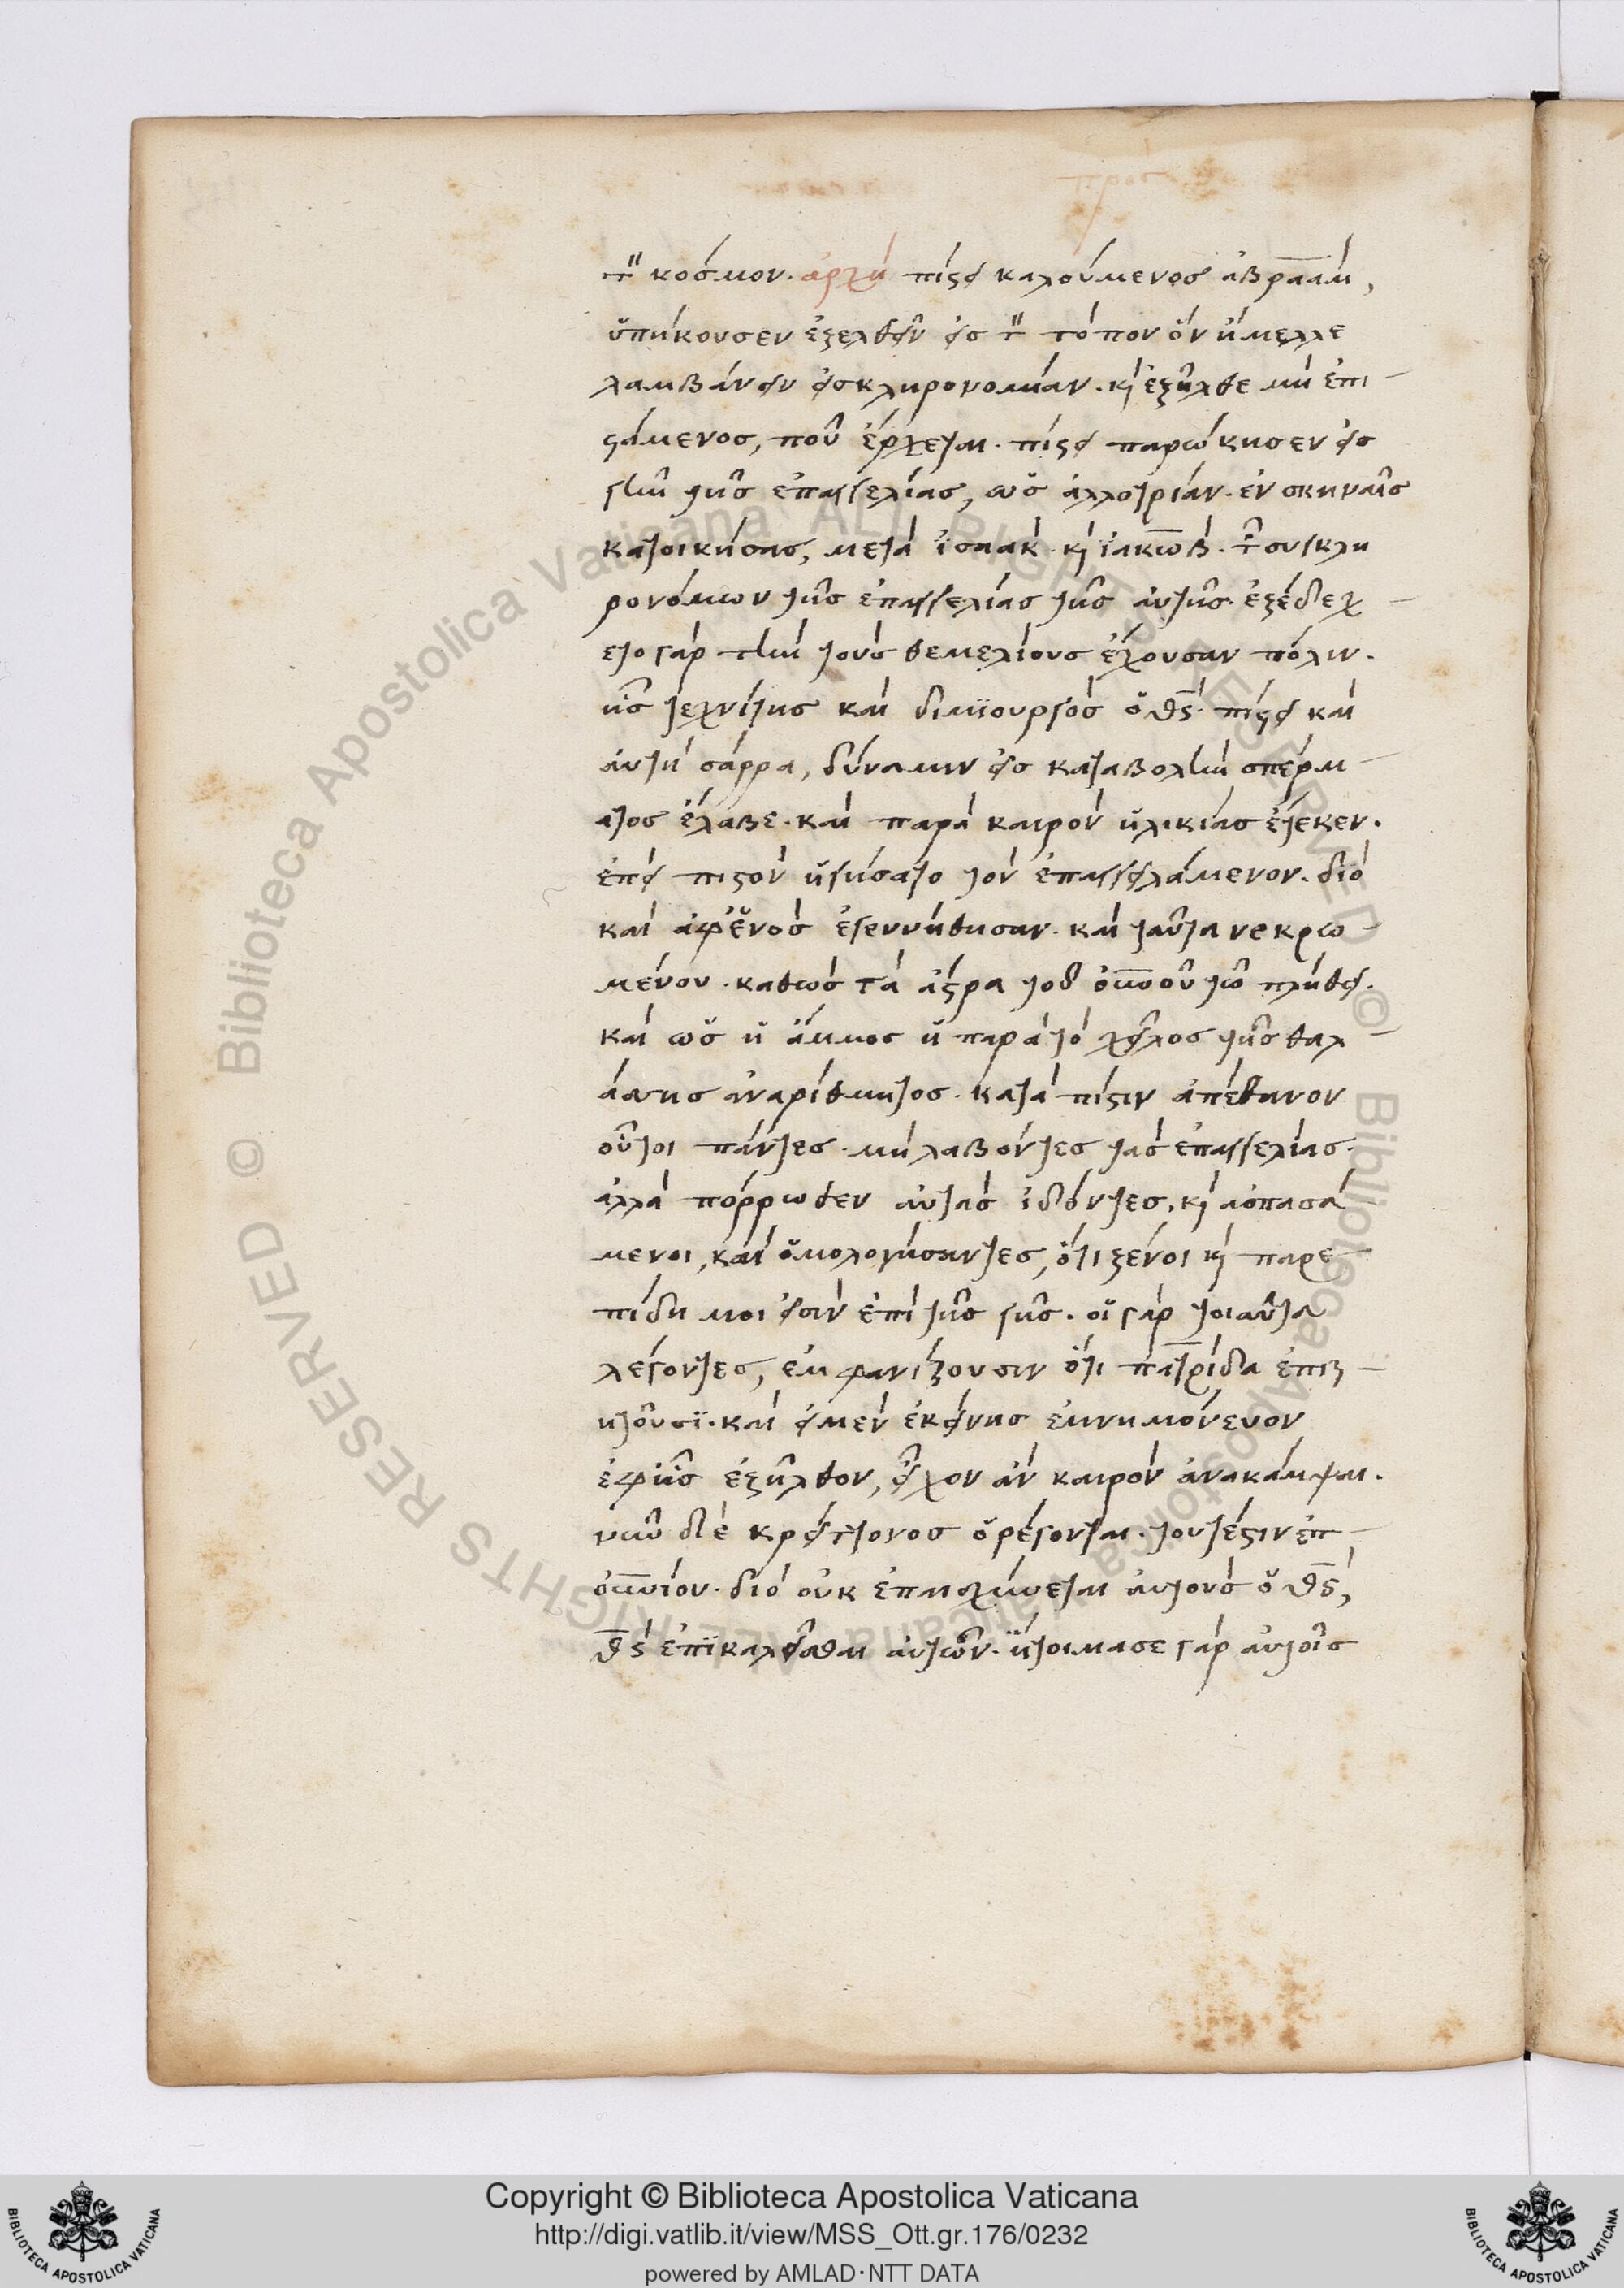 τ῀ κόσμον. ἀρχή πίστει καλούμενος ἀβραάμ,
ὑπήκουσεν ἐξελθεῖν εἰς τ῀ τόπον ὃν ἤμελλε
λαμβάνειν εἰς κληρονομίαν. κ(αὶ) ἐξῆλθε μὴ ἐπι-
στάμενος, ποῦ ἔρχεται. πίστει παρώκησεν εἰς
γῆν τῆς ἐπαγγελίας, ὡς ἀλλοτρίαν. ἐν σκηναῖς
κατοικήσας, μετὰ ἰσαάκ. κ(αὶ) ἰακώβ. τ῀ συγκλη
ρονόμων τῆς ἐπαγγελίας τῆς αὐτῆς. ἐξέδεχ-
ετο γὰρ τὴν τοὺς θεμελίους ἔχουσαν πόλιν.
ἧς τεχνίτης καὶ διμϊουργὸς ὁ θς. πίστει καὶ
αὐτὴ σάρρα, δύναμιν εἰς καταβολὴν σπέρμ-
ατος ἔλαβε. καὶ παρὰ καιρὸν ἡλικίας ἔτεκεν.
ἐπεὶ πιστὸν ἡγήσατο τὸν ἐπαγγειλάμενον. διὸ
καὶ ἀφ’ ἑνὸς ἐγεννήθησαν. καὶ ταῦτα νεκρω-
μένου. καθὼς τὰ ἄστρα τοῦ οὐνοῦ τῶ πλήθει.
καὶ ὡς ἡ ἄμμος ἡ παρὰ τὸ χεῖλος τῆς θαλ-
άσσης ἀναρίθμητος. κατὰ πίστιν ἀπέθανον
οὗτοι πάντες. μὴ λαβόντες τὰς ἐπαγγελίας.
ἀλλὰ πόρρωθεν αὐτὰς ἰδόντες, κ(αὶ) ἀσπασά
μενοι, καὶ ὁμολογήσαντες, ὅτι ξένοι κ(αὶ) παρε-
πίδημοι εἰσὶν ἐπὶ τῆς γῆς. οἱ γὰρ τοιαῦτα
λέγοντες, ἐμφανίζουσιν ὅτι πατρίδα ἐπιζ-
ητοῦσϊ. καὶ εἰ μὲν ἐκείνης ἐμνημόνευον
ἐφ’ ἧς ἐξῆλθον, εἶχον ἂν καιρὸν ἀνακάμψαι.
νῦν δὲ κρείττονος ὀρέγονται. τουτέστιν ἐπ-
ουνίου. διὸ οὐκ ἐπαισχύνεται αὐτοὺς ὁ θς,
θς ἐπϊκαλεῖσθαι αὐτῶν. ἡτοίμασε γὰρ αὐτοῖς
Copyright © Biblioteca Apostolica Vaticana
http://digi.vatlib.it/view/MSS_Ott.gr.176/0232
powered by AMLAD·NTT DATA
BIBLIOTECA APOSTOLICA VATICANA
BIBLIOTECA APOSTOLICA VATICANA
© Biblioteca Apostolica Vaticana ALL RIGHTS RESERVED © Biblioteca Apostolica Vaticana ALL RIGHTS RESERVED